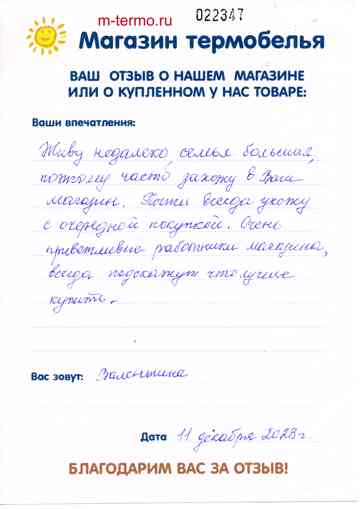 m-termo.ru
022347
Магазин термобелья
ВАШ ОТЗЫВ О НАШЕМ МАГАЗИНЕ
ИЛИ О КУПЛЕННОМ У НАС ТОВАРЕ:
Ваши впечатления:
Живу недалеко, семья большая,
поэтому часто захожу в Ваш
магазин. Почти всегда ухожу
с очередной покупкой. Очень
приветливые работники магазина,
всегда подскажут что лучше
купить.
Вас зовут: Валентина
Дата 11 декабря 2023 г.
БЛАГОДАРИМ ВАС ЗА ОТЗЫВ!